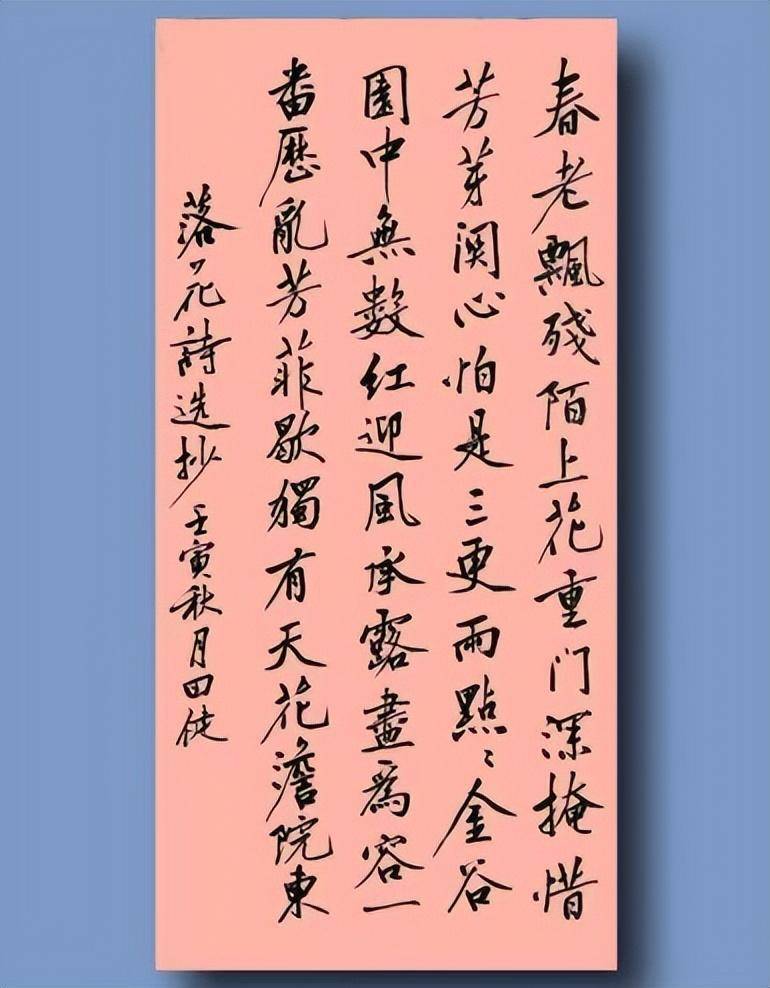 春老飄殘陌上花重门深掩惜
芳芽関心怕是三更雨點〻金谷
園中無数红迎風承露盡為容一
番歷亂芳菲歇獨有天花澹院東
落花詩选抄 壬寅秋月田徒